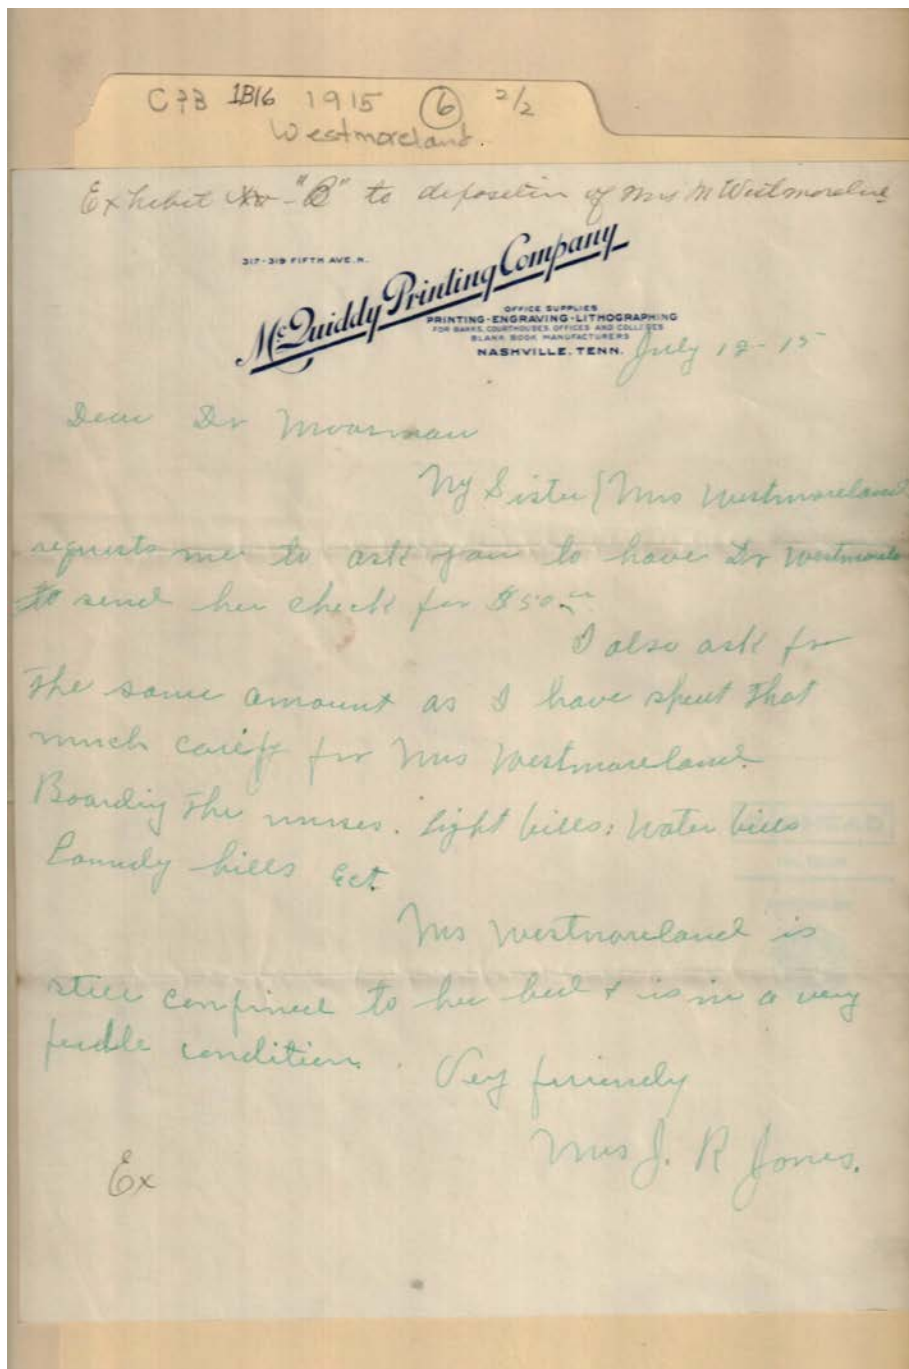 C&B 1B16 1915 6 2/2
Westmoreland.
Exhibit No "B" to deposition of Mrs M Westmoreland
317-319 FIFTH AVE. N.
McQuiddy Printing Company
OFFICE SUPPLIES
PRINTING-ENGRAVING-LITHOGRAPHING
FOR BANKS, COURTHOUSES, OFFICES AND COLLEGES
BLANK BOOK MANUFACTURERS
NASHVILLE, TENN.
July 12-15
Dear Dr Moorman
My Sister (Mrs Westmoreland
requests me to ask you to have Dr Westmorela
to send her check for $50.00
I also ask for
the same amount as I have spent that
much for Mrs Westmoreland.
Boarding the nurses. Light bills; Water bills
bills Ect.
Mrs Westmoreland is
still confined to her bed & is in a very
condition. Very
Mrs J. R Jones.
Ex